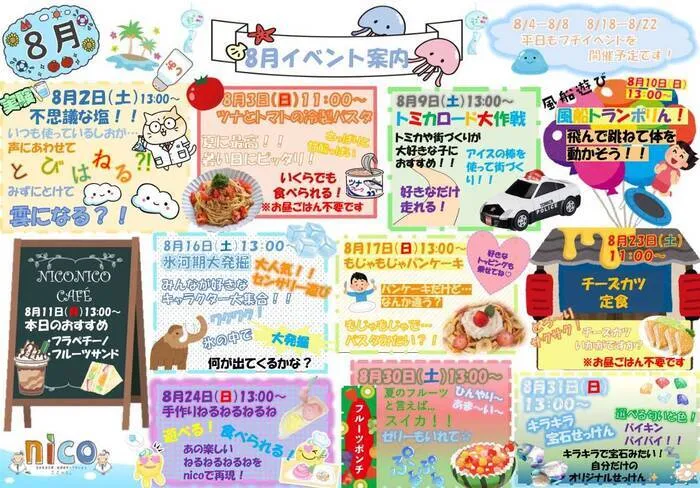 8月
8月イベント案内
8/4—8/8 8/18—8/22
平日もプチイベントを
開催予定です！
実験
8月2日(土)13:00～
不思議な塩！！
いつも使っているしおが…
声にあわせて
とびはねる?!
みずにとけて
雲になる？！
しお
8月3日(日)11:00～
ツナとトマトの冷製パスタ
夏に最高！！
暑い日にピッタリ！
さっぱりで
いくらでも
食べられる！
※お昼ごはん不要です
ツナ
8月9日(土)13:00～
トミカロード大作戦
トミカや街づくりが
大好きな子に
おすすめ！！
アイスの棒
を使って街づ
くり！！
好きなだけ
走れる！
POLICE
8月10日(日)
13:00～
風船遊び
風船トランポりん！
飛んで跳ねて体を
動かそう！！
NICONICO
CAFÉ
8月11日(月)13:00～
本日のおすすめ
フラペチーノ
フルーツサンド
8月16日(土)13:00～
氷河期大発掘
大人気！！
センサリー遊び
みんなが好きな
キャラクター大集合！！
ワクワク！
氷の中で
大発掘
何が出てくるかな？
8月17日(日)13:00～
もじゃもじゃパンケーキ
好きな
トッピングも
乗せてね♡
パンケーキだけど…
なんか違う？
もじゃもじゃで…
パスタみたい？！
8月23日(土)
11:00～
チーズカツ
定食
サクサク！
チーズカツ
いかがですか？
※お昼ごはん不要です
nico
8月24日(日)13:00～
手作りねるねるねるね
遊べる！食べられる！
あの楽しい
ねるねるねるねを
nicoで再現！
8月30日(土)13:00～
夏のフルーツ
と言えば…
スイカ！！
ゼリーもいれて☆
ひんやり～
あま～い～
フルーツポンチ
ぷるぷる
8月31日(日)
13:00～
キラキラ
宝石せっけん
選べる匂いと色！
バイキン
バイバイ！！
キラキラで宝石みたい！
自分だけの
オリジナルせっけん